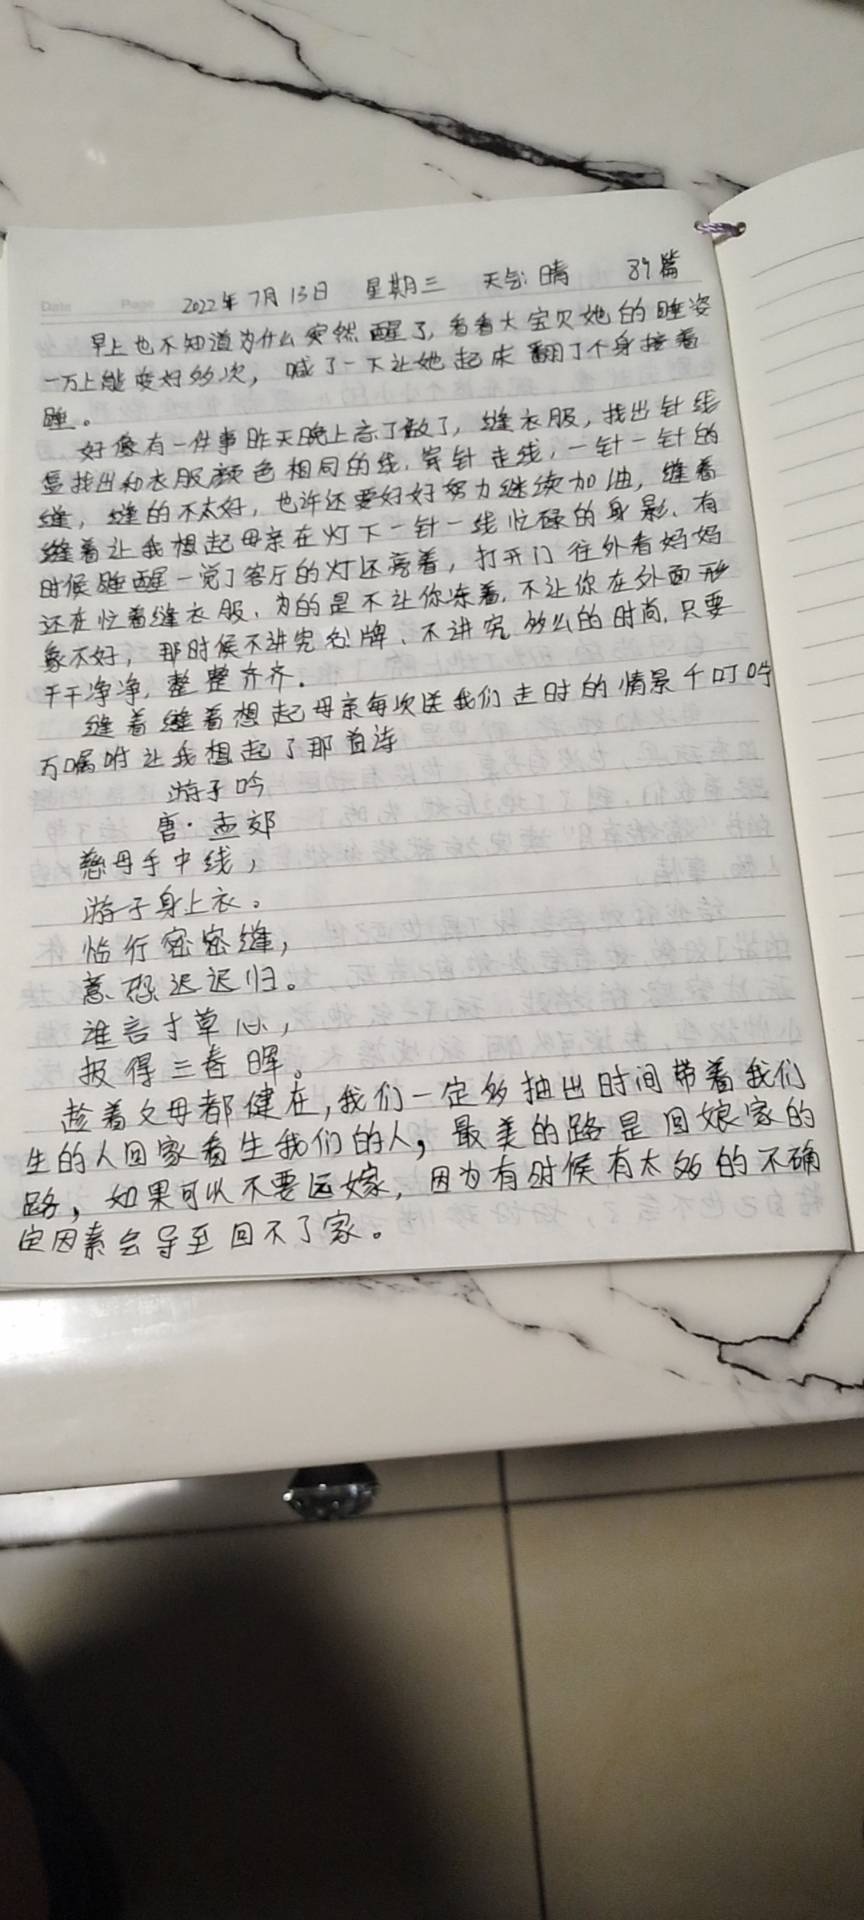 Date Page 2022年7月13日 星期三 天气:晴 89篇
早上也不知道为什么突然醒了,看看大宝贝她的睡姿
一万上能变好多次,喊了一下让她起床翻了个身接着
睡。
好像有一件事昨天晚上忘了做了,缝衣服,找出针线
盒找出和衣服颜色相同的线,穿针走线,一针一针的
缝,缝的不太好,也许还要好好努力继续加油,缝着
缝着让我想起母亲在灯下一针一线忙碌的身影、有
时候睡醒一觉了客厅的灯还亮着,打开门往外看妈妈
还在忙着缝衣服、为的是不让你冻着,不让你在外面形
象不好,那时候不讲究名牌、不讲究多么的时尚,只要
干干净净,整整齐齐.
缝着缝着想起母亲每次送我们走时的情景千叮咛
万嘱咐让我想起了那首诗
游子吟
唐·孟郊
慈母手中线,
游子身上衣。
临行密密缝,
意恐迟迟归。
谁言寸草心,
报得三春晖。
趁着父母都健在,我们一定多抽出时间带着我们
生的人回家看生我们的人,最美的路是回娘家的
路,如果可以不要远嫁,因为有时候有太多的不确
定因素会导至回不了家。